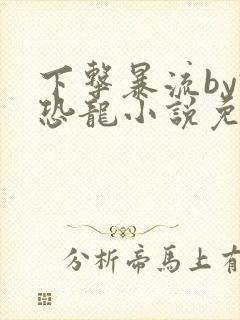 下擊暴流by
恐龍小說免
分析帝馬上有